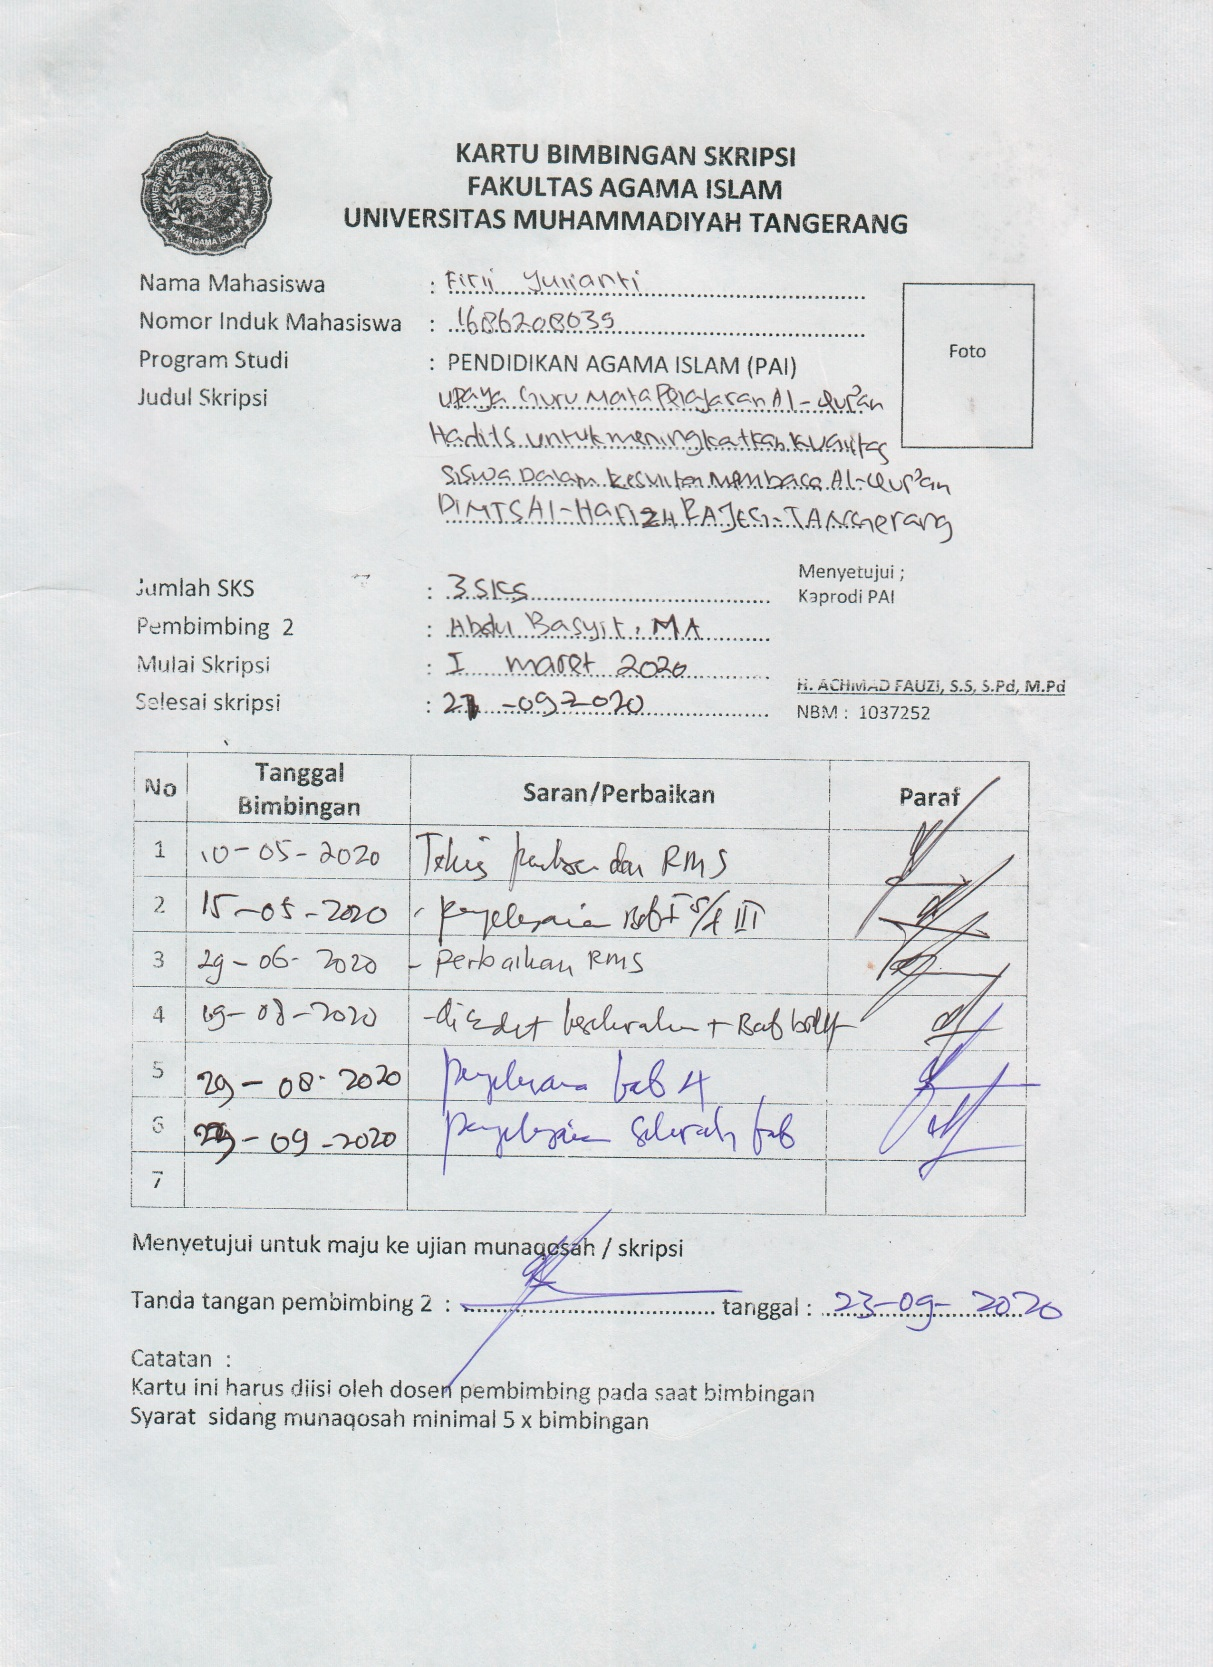 UNIVERSITAS MUHAMMADIYAH TANGERANG
FAK. AGAMA ISLAM
KARTU BIMBINGAN SKRIPSI
FAKULTAS AGAMA ISLAM
UNIVERSITAS MUHAMMADIYAH TANGERANG
Nama Mahasiswa : Fitri Yulianti
Nomor Induk Mahasiswa : 1686208039
Program Studi : PENDIDIKAN AGAMA ISLAM (PAI)
Foto
Judul Skripsi
Upaya Guru Mata Pelajaran Al-Qur'an
Hadits untuk meningkatkan kualitas
Siswa Dalam Kesulitan Membaca Al-Qur'an
Di MTS Al-Hamzah RAJEG-TANGerang
Jumlah SKS : 3 SKS
Pembimbing 2 : Abdul Basyit, MA
Mulai Skripsi : I maret 2020
Selesai skripsi : -09 2020
Menyetujui ;
Kaprodi PAI
H. ACHMAD FAUZI, S.S, S.Pd, M.Pd
NBM : 1037252
No Tanggal Bimbingan Saran/Perbaikan Paraf
1 10-05-2020 dan RMS
2 15-05-2020 - penyelesaian Bab I S/d III
3 29-06-2020 - Perbaikan RMS
4 09-08-2020 - di edit + Bab
5 29-08-2020 penyelesaian bab 4
6 -09-2020 penyelesaian seluruh bab
7
Menyetujui untuk maju ke ujian munaqosah / skripsi
Tanda tangan pembimbing 2 : tanggal : 23-09-2020
Catatan :
Kartu ini harus diisi oleh dosen pembimbing pada saat bimbingan
Syarat sidang munaqosah minimal 5 x bimbingan